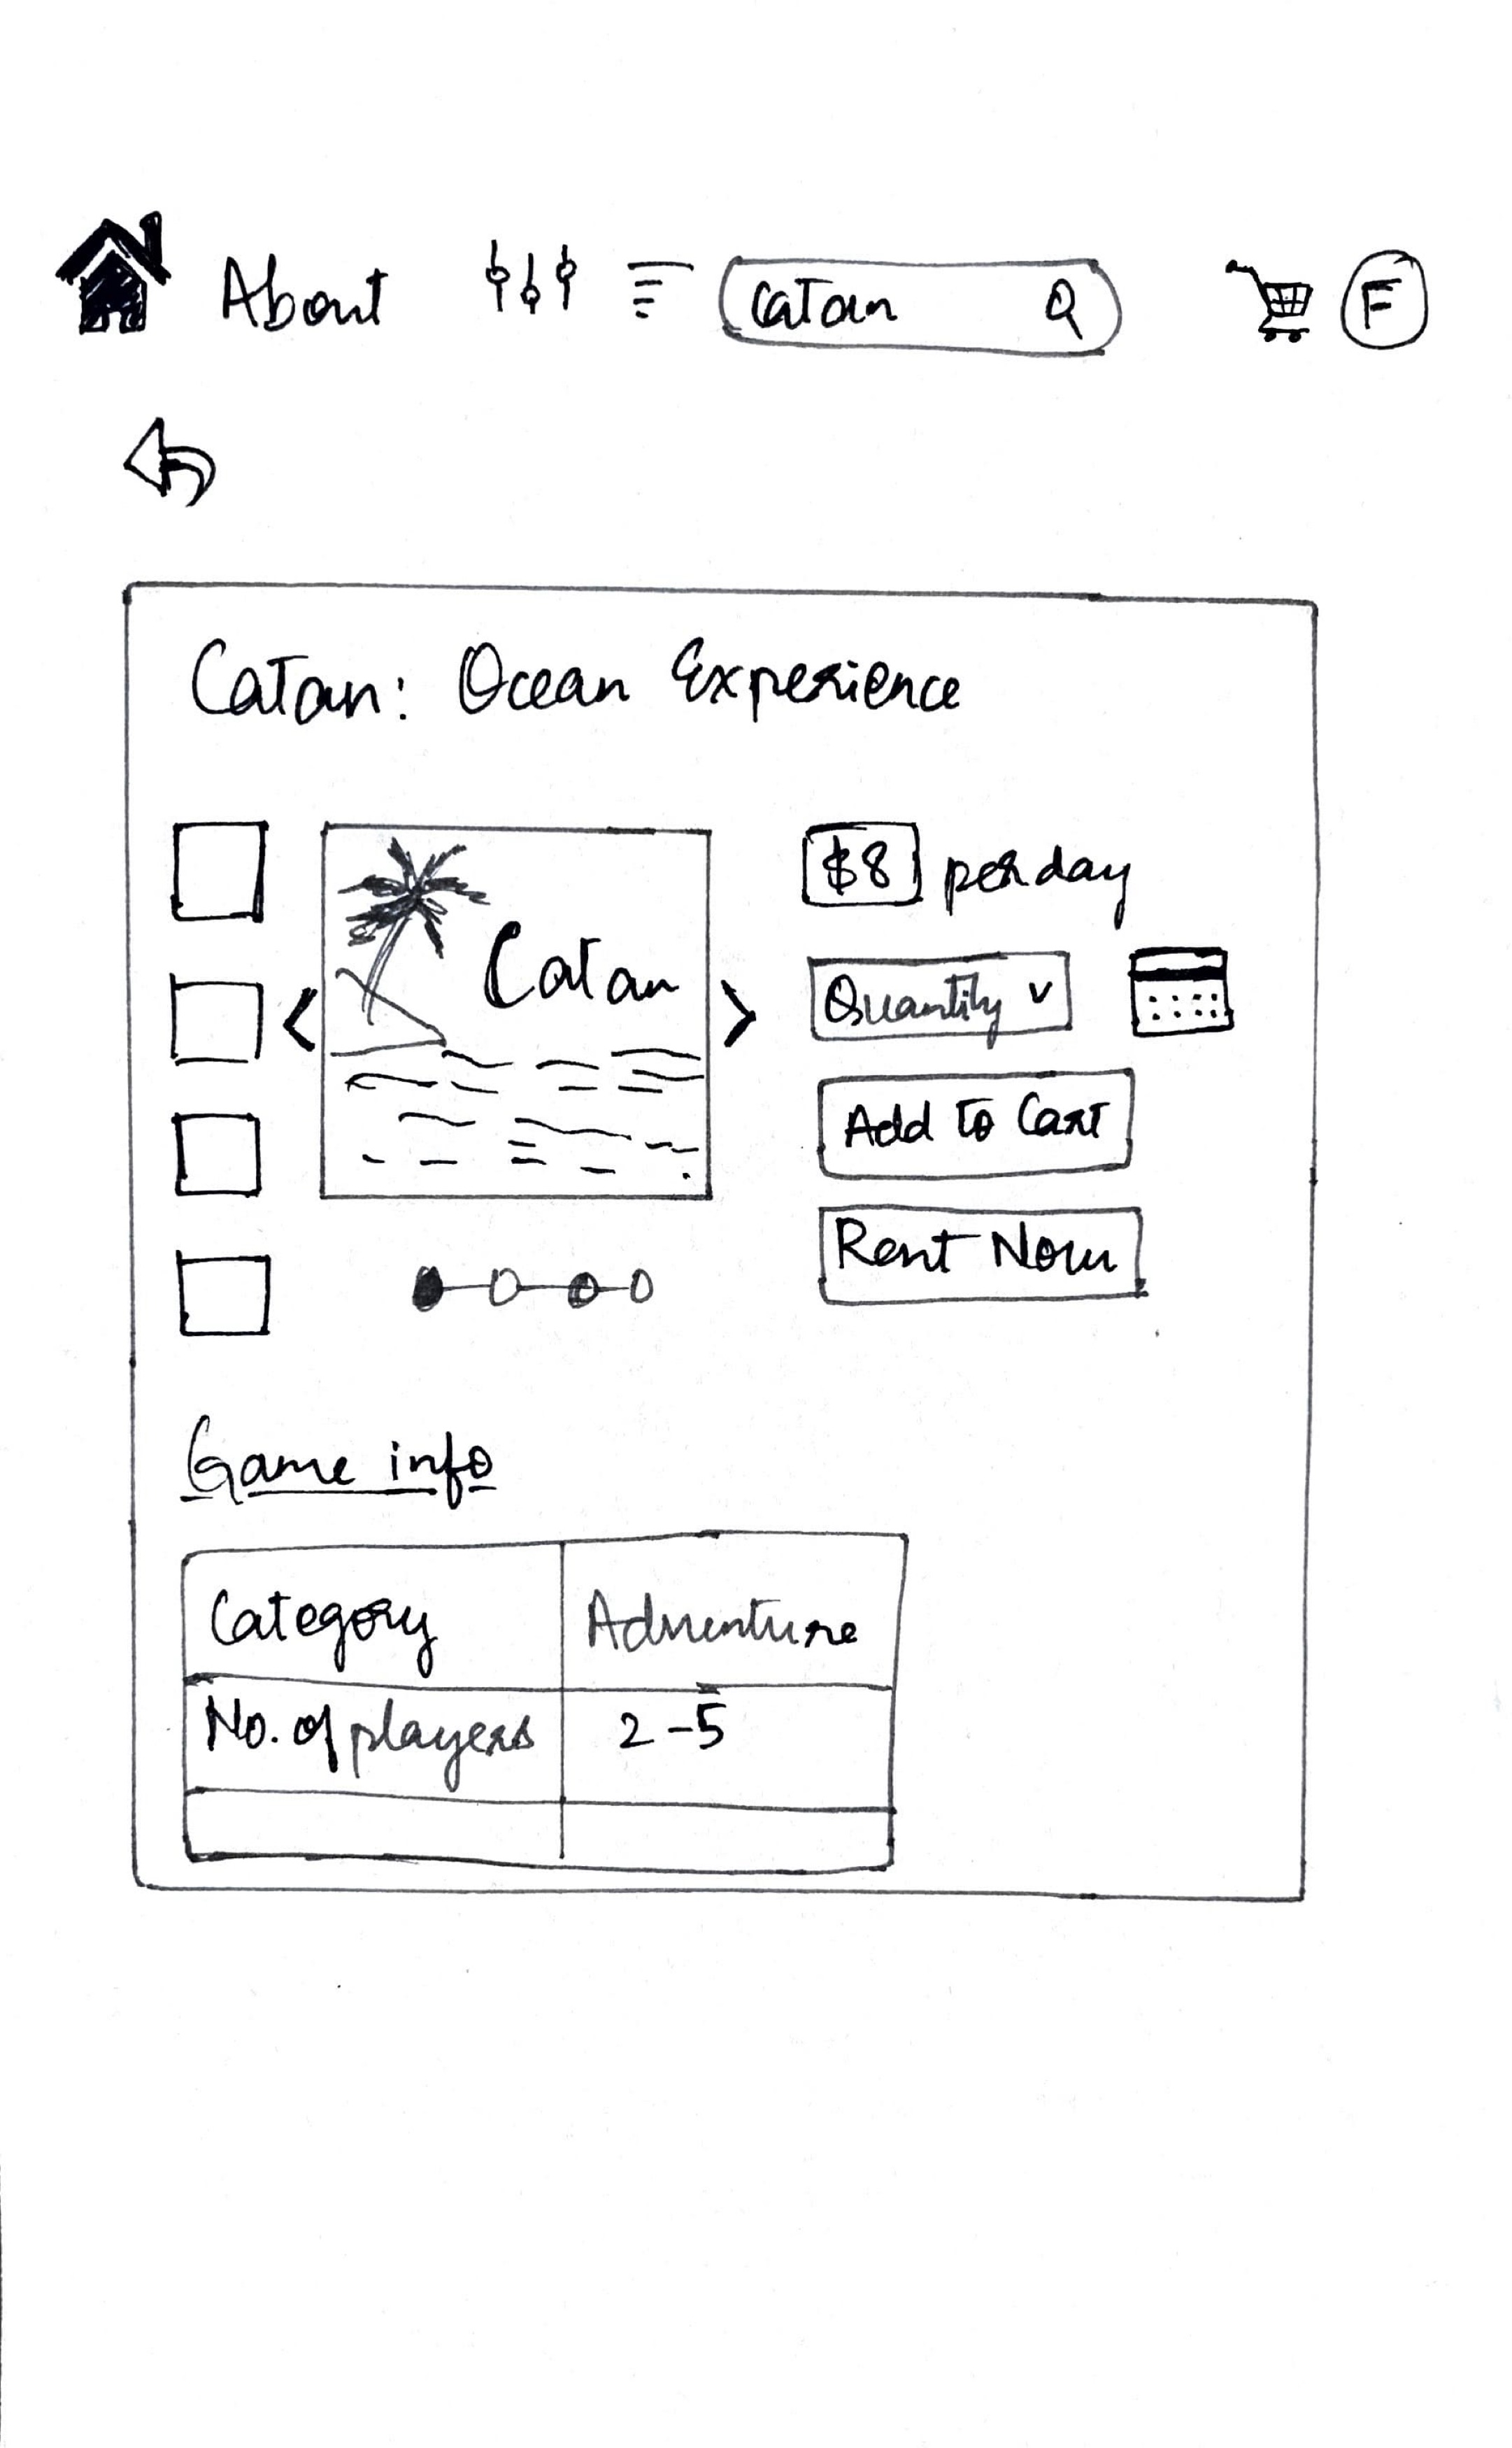 About
Catan
F
Catan: Ocean Experience
Catan
$8 per day
Quantity
Add to Cart
Rent Now
Game info
Category Adventure
No. of players 2-5